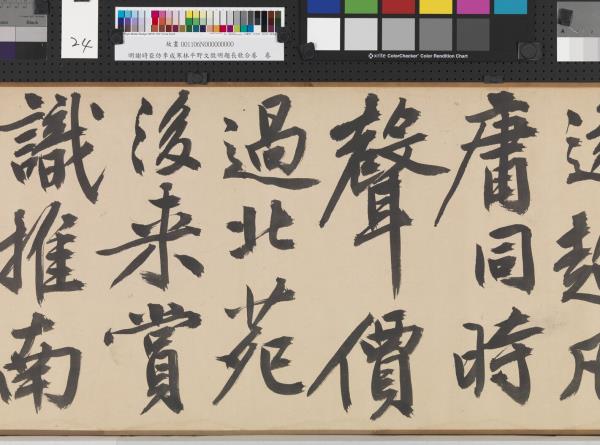 24
故畫 001106N000000000
明謝時臣仿李成寒林平野文徵明題長歌合卷 卷
x·rite ColorChecker Color Rendition Chart
Black
庸同時
聲價
過北苑
後来賞
識推南